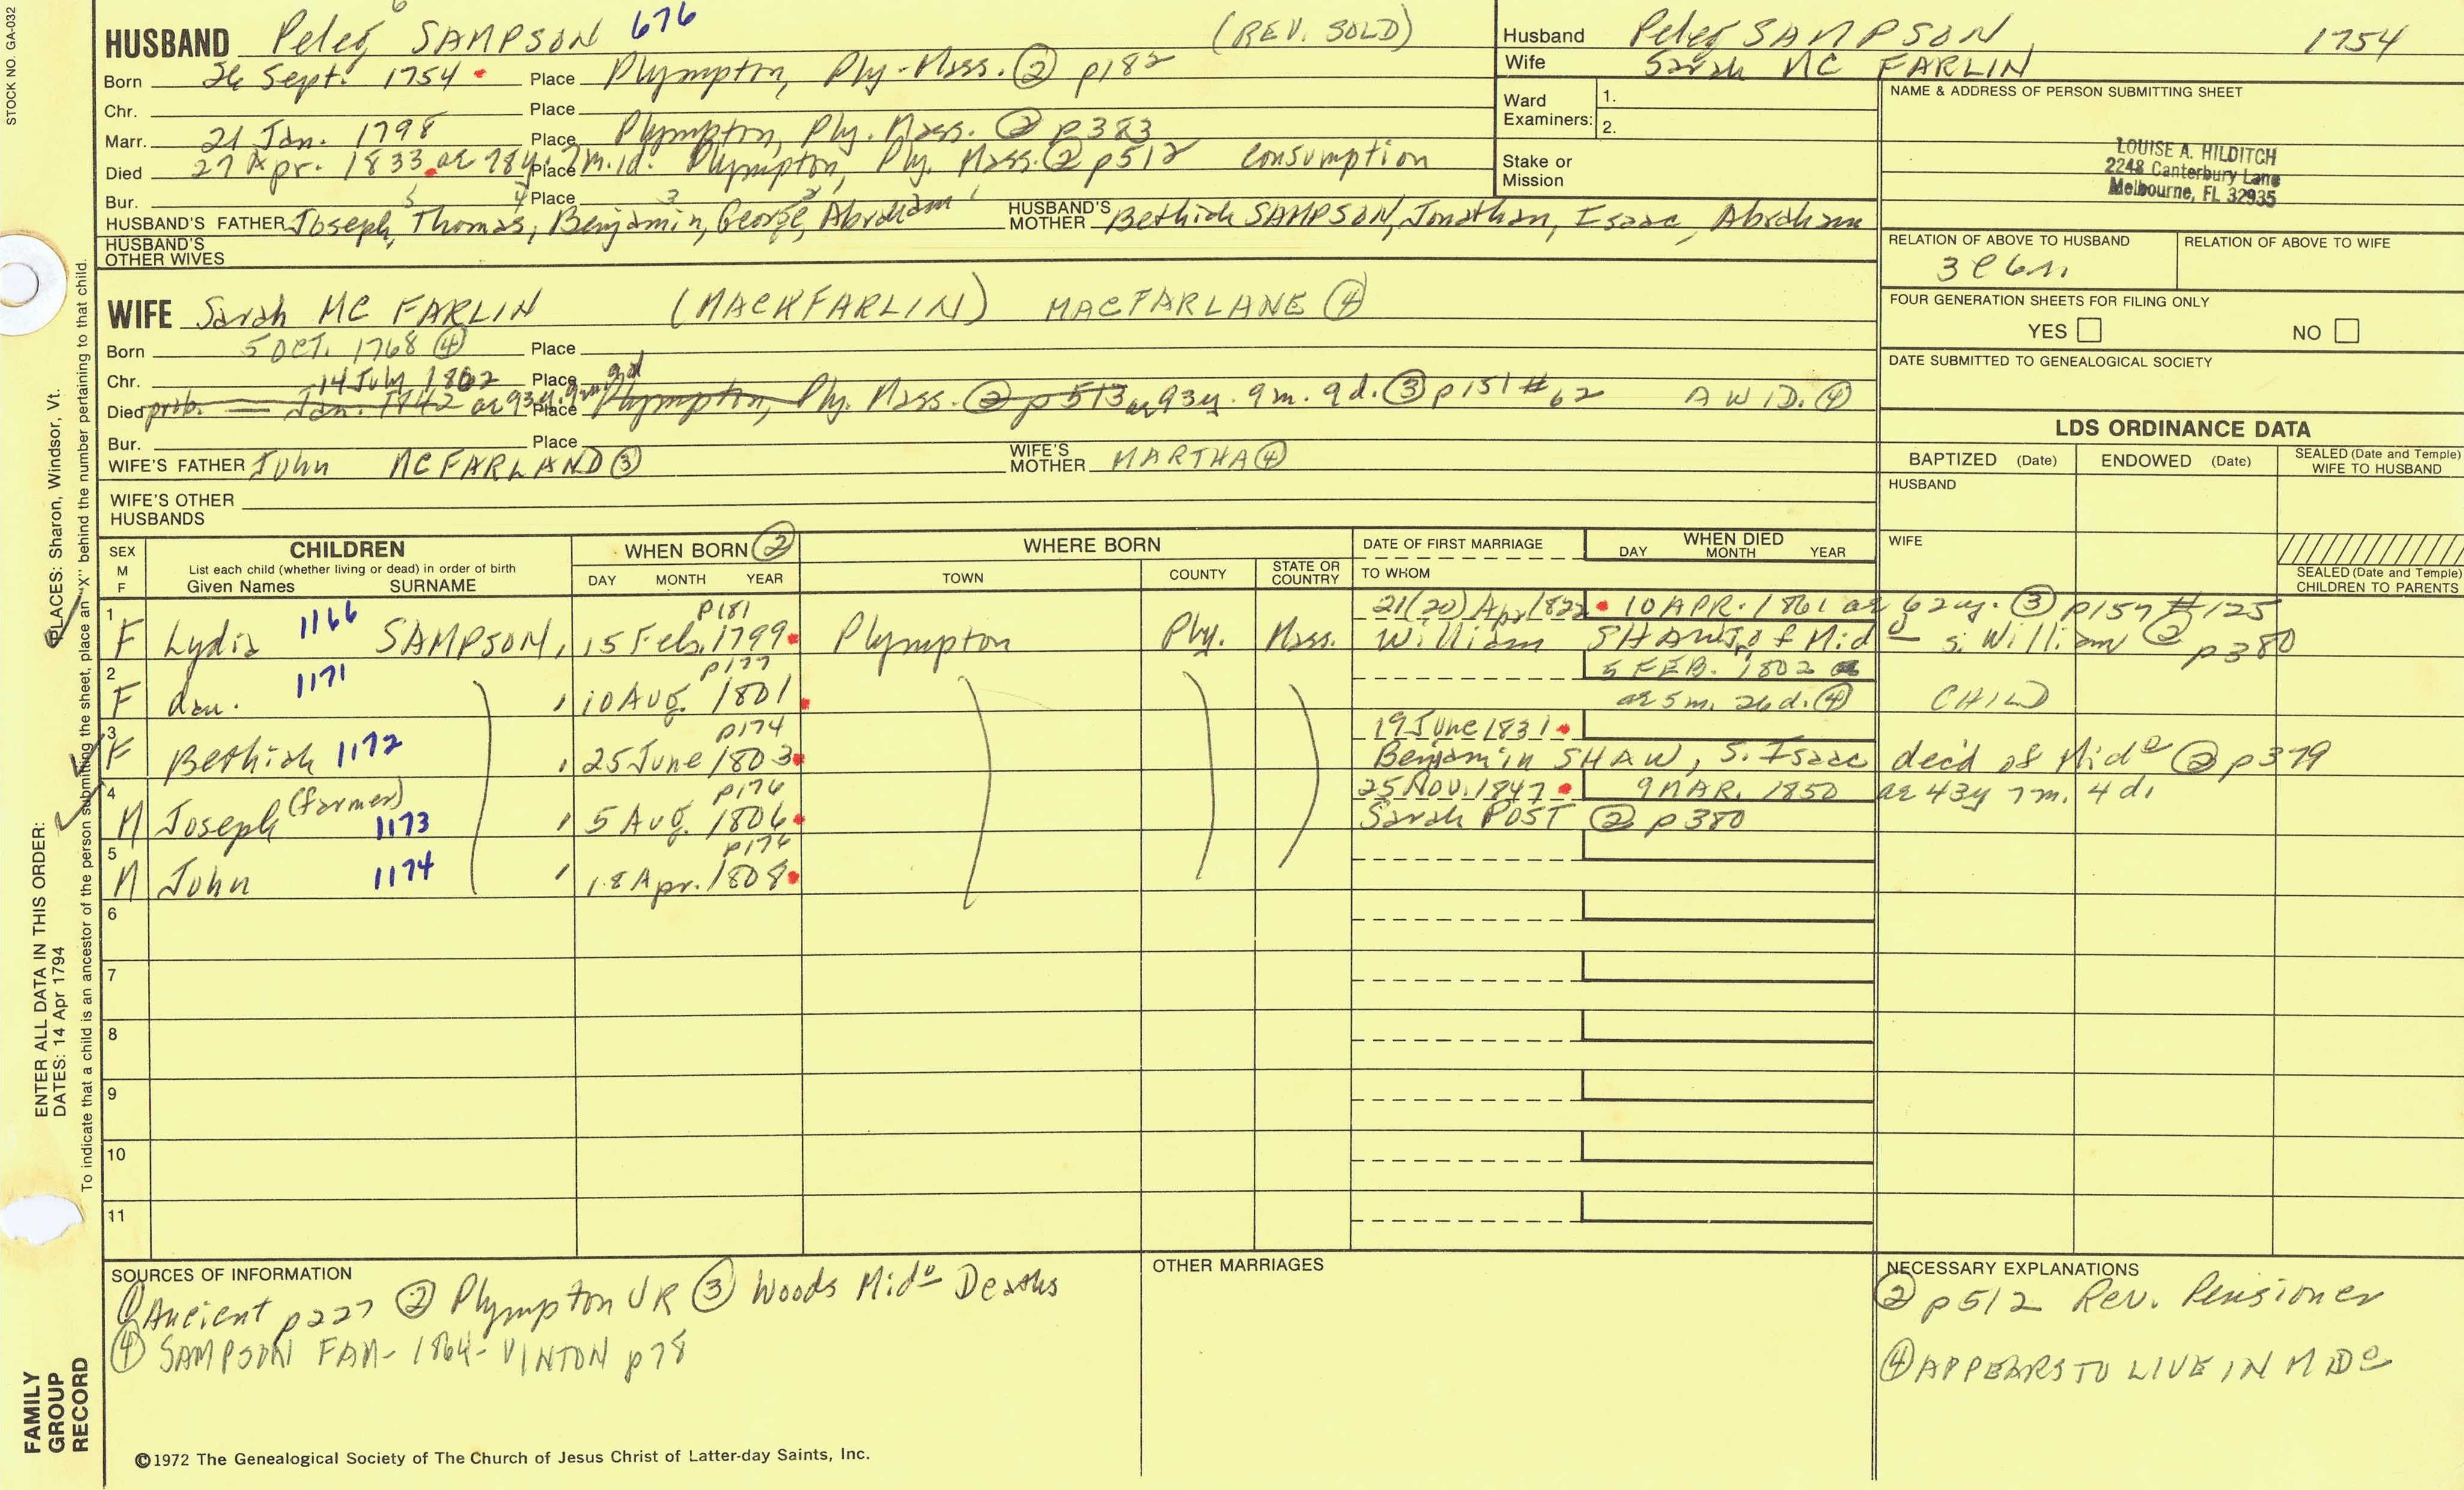 STOCK NO. GA-032
HUSBAND Peleg SAMPSON 6 676 (REV. SOLD)
Born 26 Sept. 1754 Place Plympton, Ply-Mass. ② p182
Chr. Place
Marr. 21 Jan. 1798 Place Plympton, Ply. Mass. ② p383
Died 27 Apr. 1833 ae 78y. 7m. 1d. Place Plympton, Ply. Mass. ② p512 Consumption
Bur. Place
5 4 3 2 1
HUSBAND'S FATHER Joseph, Thomas, Benjamin, George, Abraham HUSBAND'S MOTHER Bethiah SAMPSON, Jonathan, Isaac, Abraham
HUSBAND'S OTHER WIVES
Husband Peleg SAMPSON 1754
Wife Sarah MC FARLIN
Ward Examiners: 1.
2.
Stake or Mission
NAME & ADDRESS OF PERSON SUBMITTING SHEET
LOUISE A. HILDITCH
2248 Canterbury Lane
Melbourne, FL 32935
RELATION OF ABOVE TO HUSBAND RELATION OF ABOVE TO WIFE
FOUR GENERATION SHEETS FOR FILING ONLY
YES NO
DATE SUBMITTED TO GENEALOGICAL SOCIETY
WIFE Sarah MC FARLIN (MACKFARLIN) MACFARLANE ④
Born 5 OCT. 1768 ④ Place
Chr. Place
14 July 1862
Died prob. — Jan. 1842 ae 93y. 9m. 9d Place Plympton, Ply. Mass. ② p513 ae 93y. 9m. 9d. ③ p151 #62 A WID. ④
Bur. Place
WIFE'S FATHER John MCFARLAND ③ WIFE'S MOTHER MARTHA ④
WIFE'S OTHER HUSBANDS
LDS ORDINANCE DATA
BAPTIZED (Date) ENDOWED (Date) SEALED (Date and Temple) WIFE TO HUSBAND
HUSBAND
WIFE
SEALED (Date and Temple) CHILDREN TO PARENTS
SEX M F CHILDREN WHEN BORN ② WHERE BORN DATE OF FIRST MARRIAGE WHEN DIED
List each child (whether living or dead) in order of birth
Given Names SURNAME DAY MONTH YEAR TOWN COUNTY STATE OR COUNTRY TO WHOM DAY MONTH YEAR
1 p181 21(20) Apr 1822 10 APR. 1861 ae 62y. ③ p157 #125
F Lydia 1166 SAMPSON, 15 Feb. 1799 Plympton Ply. Mass. William SHAW Jr. of Mido s. William ② p380
2 p177 5 FEB. 1802
F dau. 1171 10 Aug. 1801 ae 5m. 26d. ④ CHILD
3 p174 19 June 1831
F Bethiah 1172 25 June 1803 Benjamin SHAW, S. Isaac dec'd of Mido ② p379
4 p176 25 Nov. 1847 9 MAR. 1850 ae 43y 7m. 4d.
M Joseph (farmer) 1173 5 Aug. 1806 Sarah POST ② p380
5 p176
M John 1174 18 Apr. 1808
6
7
8
9
10
11
SOURCES OF INFORMATION
① Ancient p227 ② Plympton VR ③ Woods Mido Deaths
④ SAMPSON FAM- 1864- VINTON p78
OTHER MARRIAGES
NECESSARY EXPLANATIONS
② p512 Rev. Pensioner
④ APPEARS TO LIVE IN MIDo
©1972 The Genealogical Society of The Church of Jesus Christ of Latter-day Saints, Inc.
ENTER ALL DATA IN THIS ORDER:
DATES: 14 Apr 1794
PLACES: Sharon, Windsor, Vt.
To indicate that a child is an ancestor of the person submitting the sheet, place an "X" behind the number pertaining to that child.
FAMILY
GROUP
RECORD